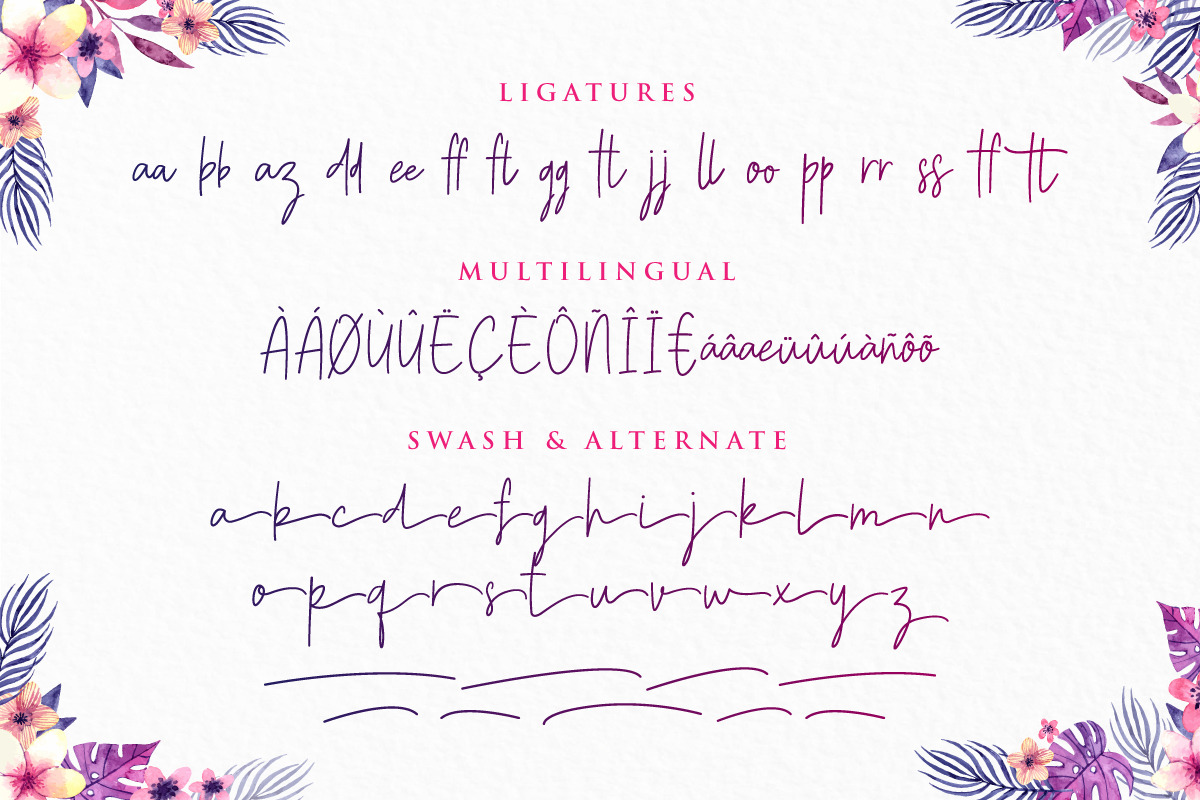 LIGATURES
aa bb az dd ee ff ft gg tt jj ll oo pp rr ss tf tt
MULTILINGUAL
ÀÁØÙÛËÇÈÔÑÎÏ€áâaeüûúàñôõ
SWASH & ALTERNATE
abcdefghijklmn
opqrstuvwxyz